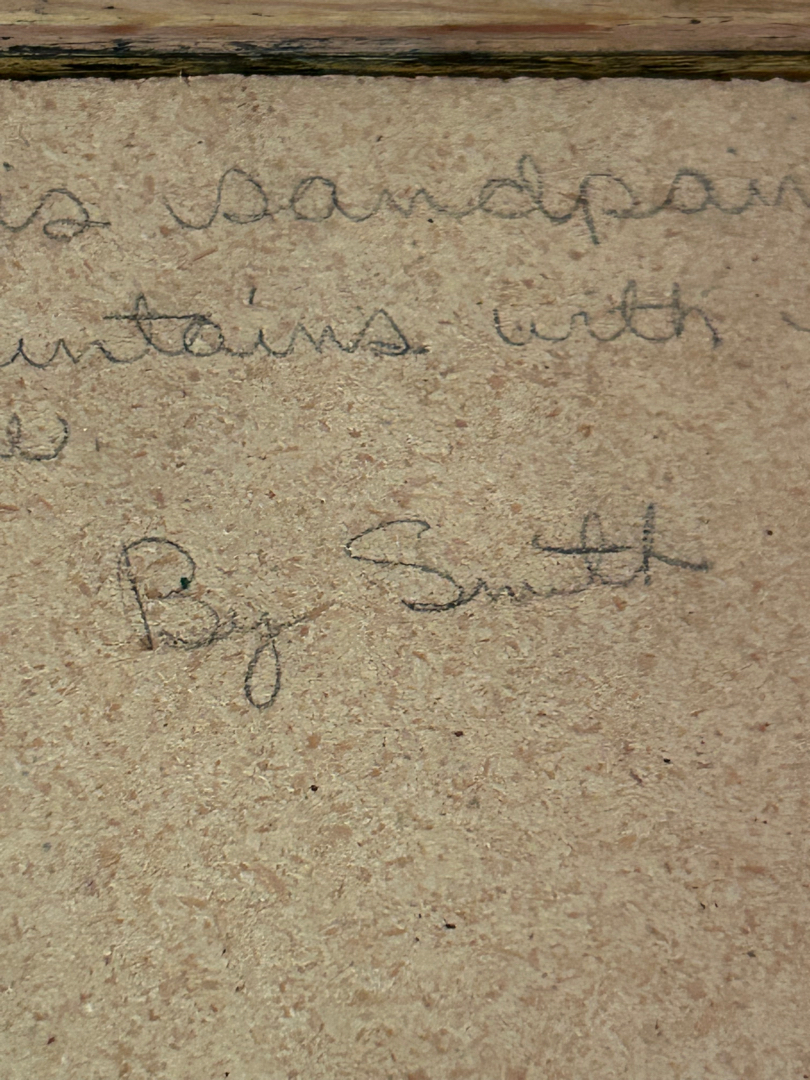 is sandpain
untains with
e.
By Smith